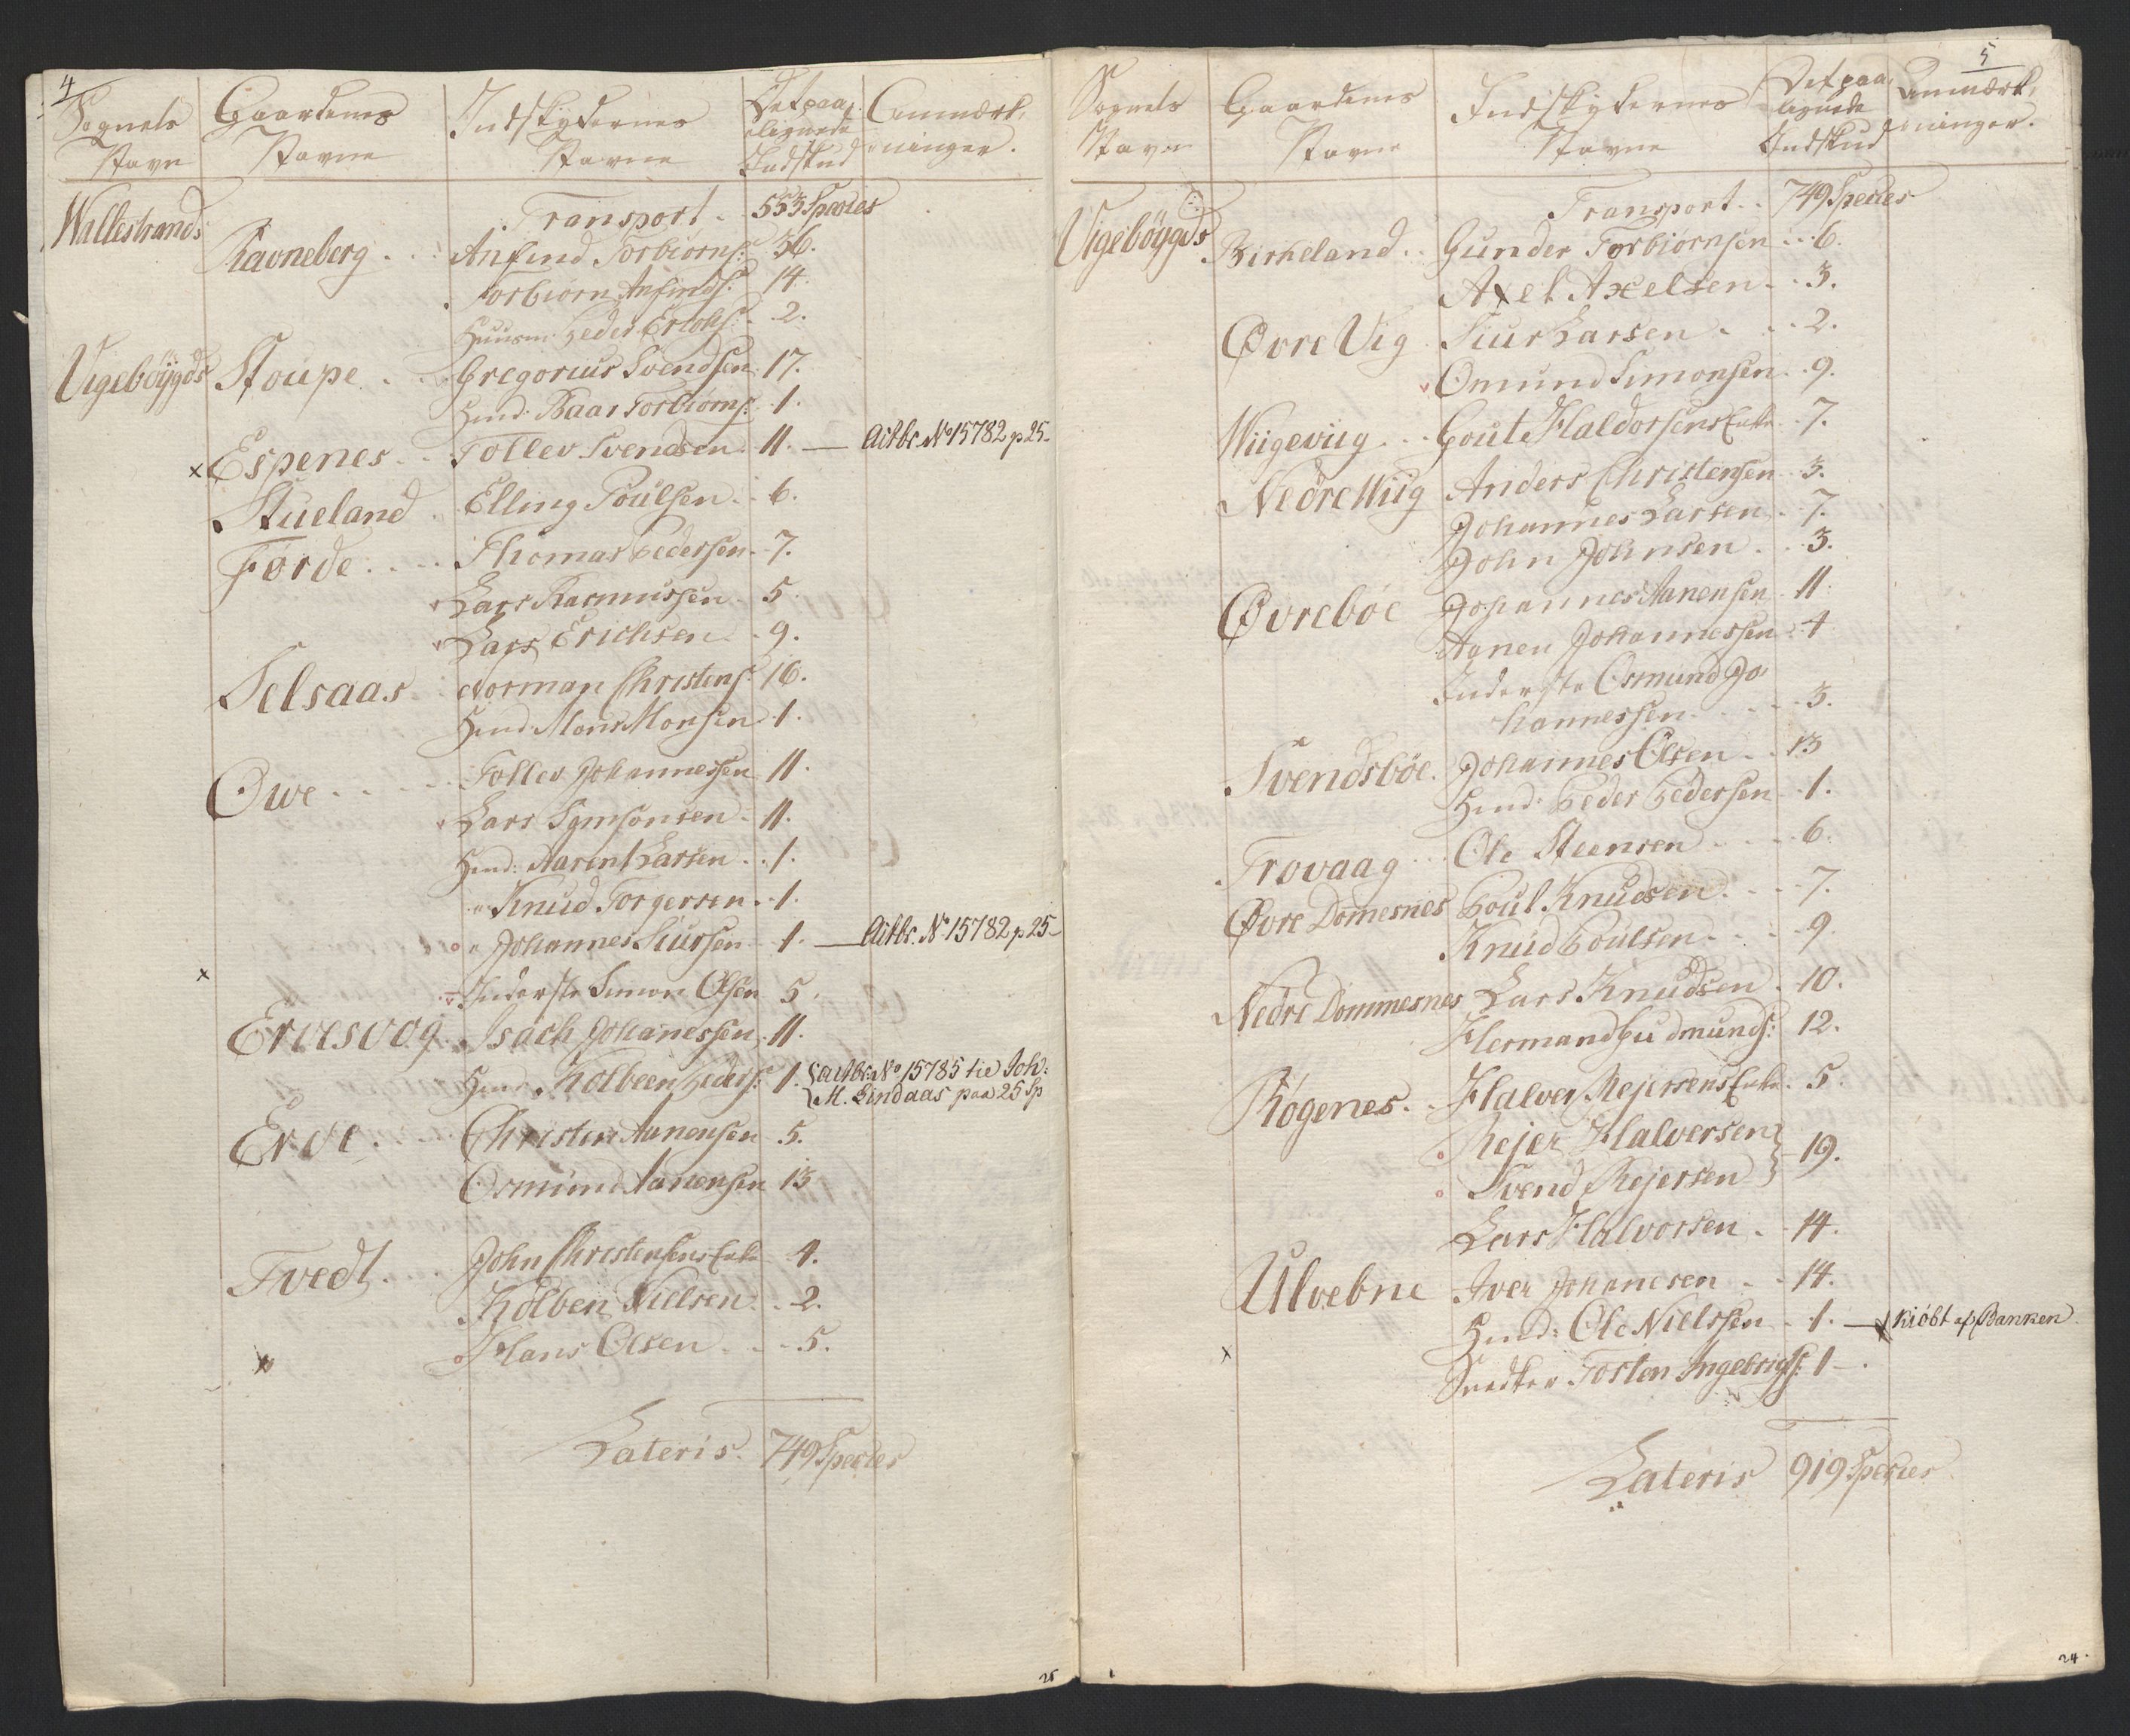 4
Sognets Gaardens Indskydernes Det paa- Anmærk-
Navn Navne Navne lignede ninger.
Indskud
Transport . 553 Species
Wallestrands
Ravneberg . . Anfind Torbiørns: 36.
Torbiørn Anfinds: 14.
Huusm: Peder Erichs: . 2.
Vigebøygds Stoupe . . Gregorius Svendsen 17.
Hmd: Baar Torbiørns: 1.
x Espenes . . Tollev Svendsen 11. — Actbr. No 15782 p 25
Stueland . Elling Poulsen . . 6.
Førde . . . . Thomas Pedersen . 7.
Lars Rasmussen . 5
Lars Erichsen . . 9.
Selsaas . Norman Christens: 16.
Hmd: Mons Monsen . 1.
Owe . . . . . Tollev Johannessen 11.
Lars Symsonsen . 11.
Hmd: Aarent Larsen . . 1.
" Knud Torgersen . 1.
o " Johannes Siursen . 1. — Actbr. No 15782 p 25
x
Inderste Simon Olsen 5.
Ervesvog . Isach Johanessen 11.
Hmd: Kolbeen Peders: 1. { Actbr: No 15785 til Joh:
M. Lindaas paa 25 Sp
Erve . . . Christen Aanensen 5.
Osmund Aanensen 13
Tvedt . . John Christensens Enke 4.
Kolben Nielsen . . 2.
x o Hans Olsen . . . 5.
Lateris . 749 Species
25
5
Sognets Gaardens Indskydernes Det paa- Anmærk-
Navn Navne Navne lignede ninger.
Indskud
Transport . . 749 Species
Vigebøygds Birkeland . . Gunder Torbiørnsen . . 6.
Axel Axelsen . . 3.
Øvre Vig Siur Larsen . . . 2.
Omund Simonsen . . 9.
Wiigeviig . . Gout Haldorsens Enke . 7.
Nedre Wiig Anders Christensen . 3.
Johannes Larsen . 7.
John Johnsen . . 3.
Øvrebøe Johannes Aanensen . 11.
Aanen Johannessen . 4
Inderste Osmund Jo-
hannessen . . . . 3.
Svendsbøe . Johannes Olsen . . 13
Hmd: Peder Pedersen . 1.
Trovaag . . . Ole Steensen . . . 6.
Øvre Domesnes Poul Knudsen . . . 7.
Knud Poulsen . . . 9.
Nedre Dommesnes Lars Knudsen . 10.
Herman Gudmunds: 12.
Røgenes . . Halver Rejersens Enke . 5.
o Rejer Halversen }
19.
o Svend Rejersen }
Lars Halvorsen . . 14.
Ulvebne Iver Johanesen . . 14.
Hmd: Ole Nielssen . 1. — kiøbt af Banken
x
Snedker Tosten Ingebrigts: 1 — .
Lateris 919 Species
24.